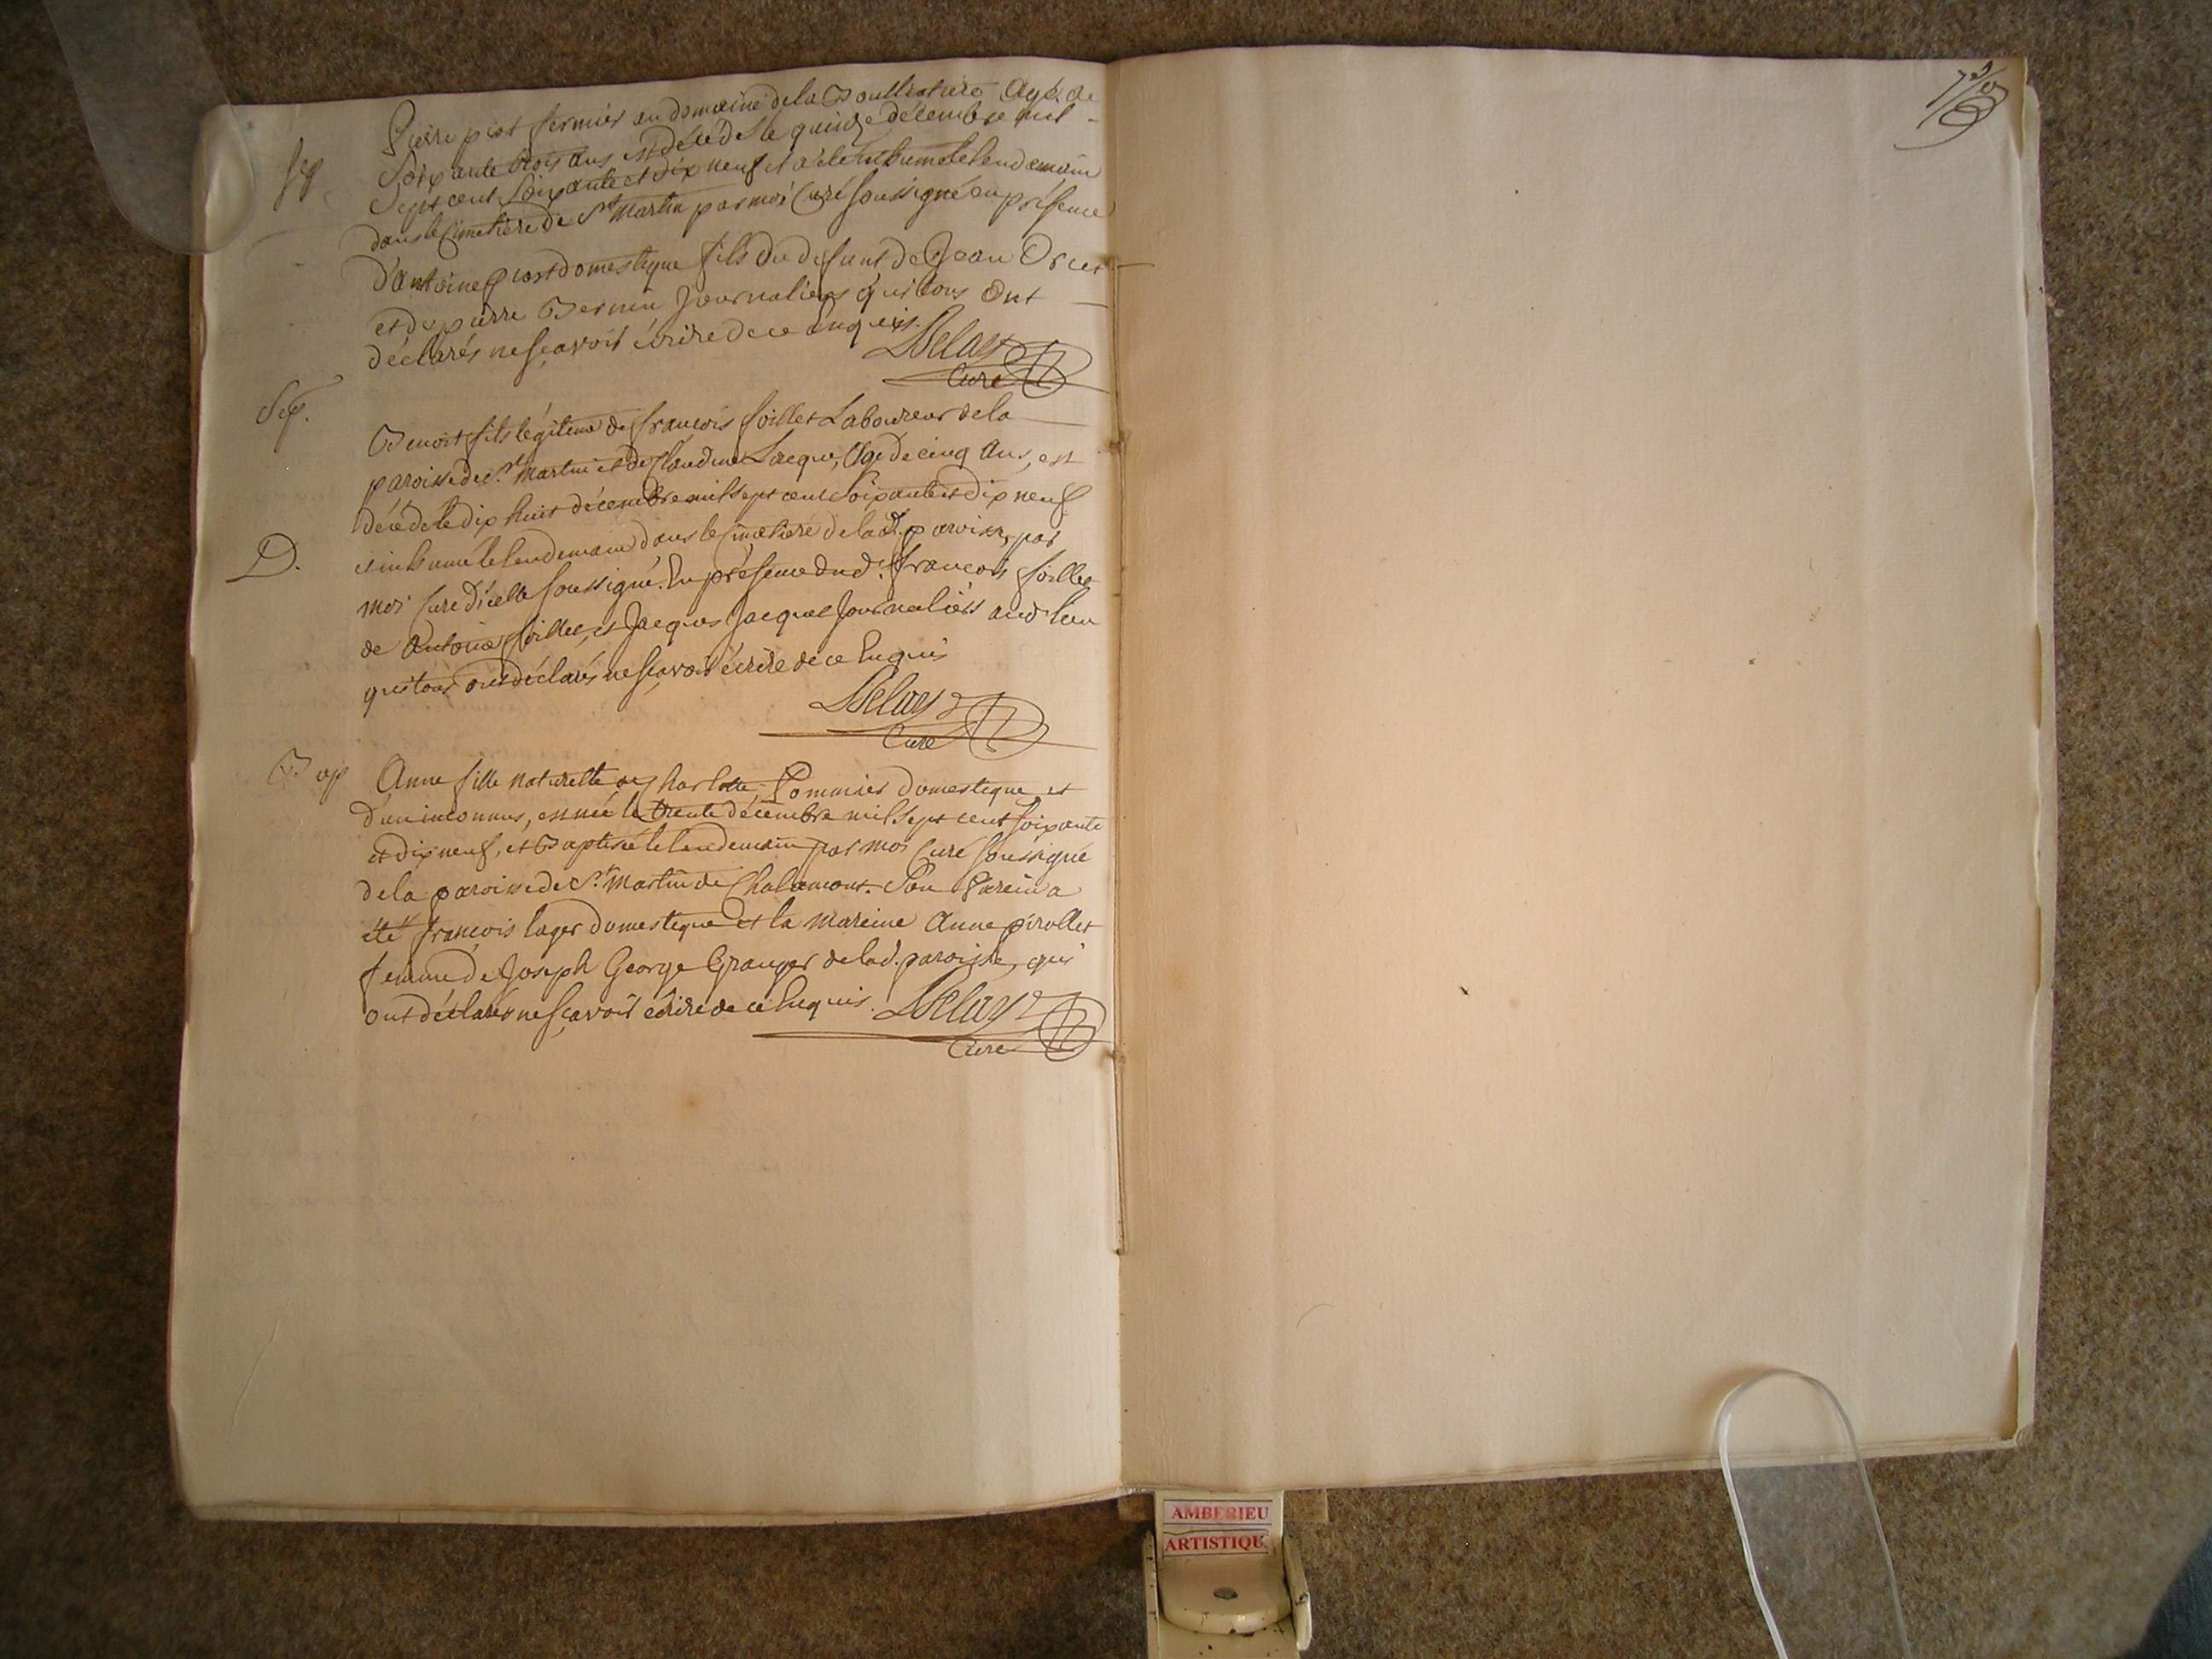 Sep
Pierre piot fermier au domaine de la Agé de
Soixante trois ans est décédé le quinze décembre mil
Sept cent Soixante et dix neuf et a été inhumé le lendemain
dans le Cimetière de St Martin par moi Curé soussigné en présence
d'Antoine piot domestique fils du defunt de Jean
et de pierre Bernin Journaliers qui tous ont
déclarés ne sçavoir écrire de ce Enquis.
Delay
Curé
Sep.
Benoit fils légitime de françois foillet Laboureur de la
paroisse de St. Martin et de Claudine Jacque, Agé de cinq Ans, est
décédé le dix huit décembre mil sept cent Soixante et dix neuf
D.
et inhumé le lendemain dans le Cimetière de lad. paroisse, par
moi Curé d'icelle soussigné. En présence dud. françois foillet
de Antoine foillet, et Jacques Jacquet Journaliers aud. lieu
qui tous ont déclarés ne sçavoir écrire de ce Enquis
Delay
Curé
Bap
Anne fille naturelle de Charlotte Pommier domestique et
d'un inconnus, est née le trente décembre mil sept cent soixante
et dix neuf, et Baptisée le lendemain par moi Curé soussigné
de la paroisse de St. Martin de Chalamont. Son Parein a
été françois lager domestique et la mareine Anne pirollet
femme de Joseph George Granger de lad. paroisse, qui
ont déclarés ne sçavoir écrire de ce Enquis. Delay
Curé
AMBERIEU
ARTISTIQU